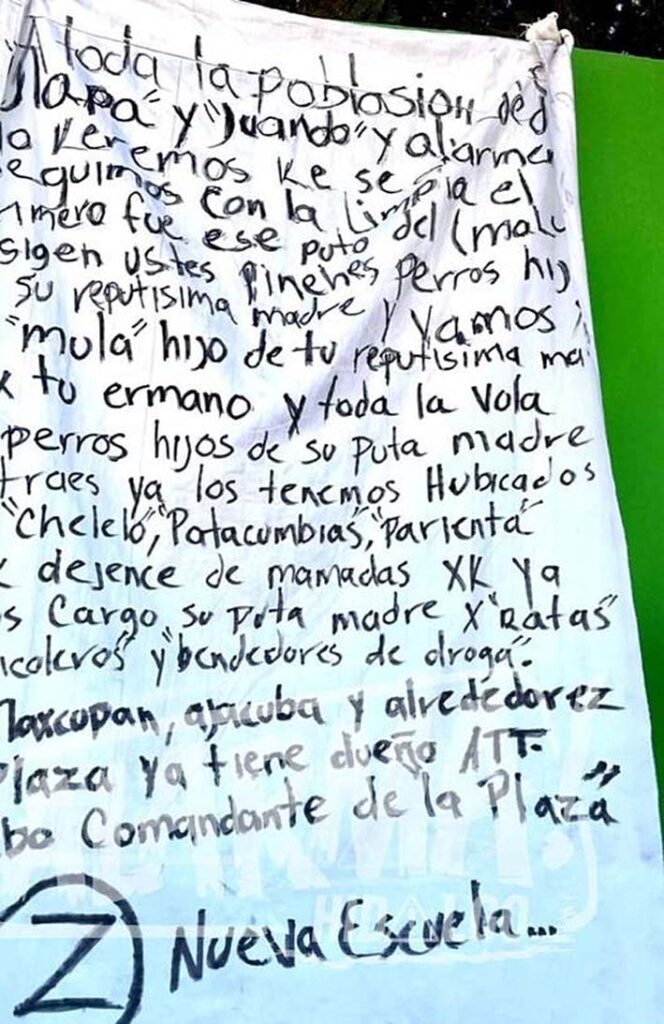 A toda la poblosion de
"Tlapa" y "Juando" y alarme
lo Keremos Ke se
eguimos con la limpia el
imero fue ese puto del (malu
sigen ustes Pinehes Perros hij
su reputisima madre y vamos
"mula" hijo de tu reputisima ma
x tu ermano y toda la vola
perros hijos de su puta madre
traes ya los tenemos Hubicados
"Chelelo", "Patacumbias", "Parienta"
dejence de mamadas XK ya
s Cargo su puta madre X "Ratas"
icoleros" y "bendedores de droga".
Tlaxcopan, ajacuba y alrededorez
Plaza ya tiene dueño ATT.
bo Comandante de la Plaza"
Z Nueva Escuela...